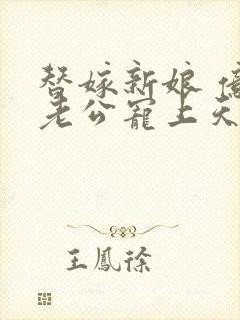 替嫁新娘 億
老公寵上天
王鳳徐